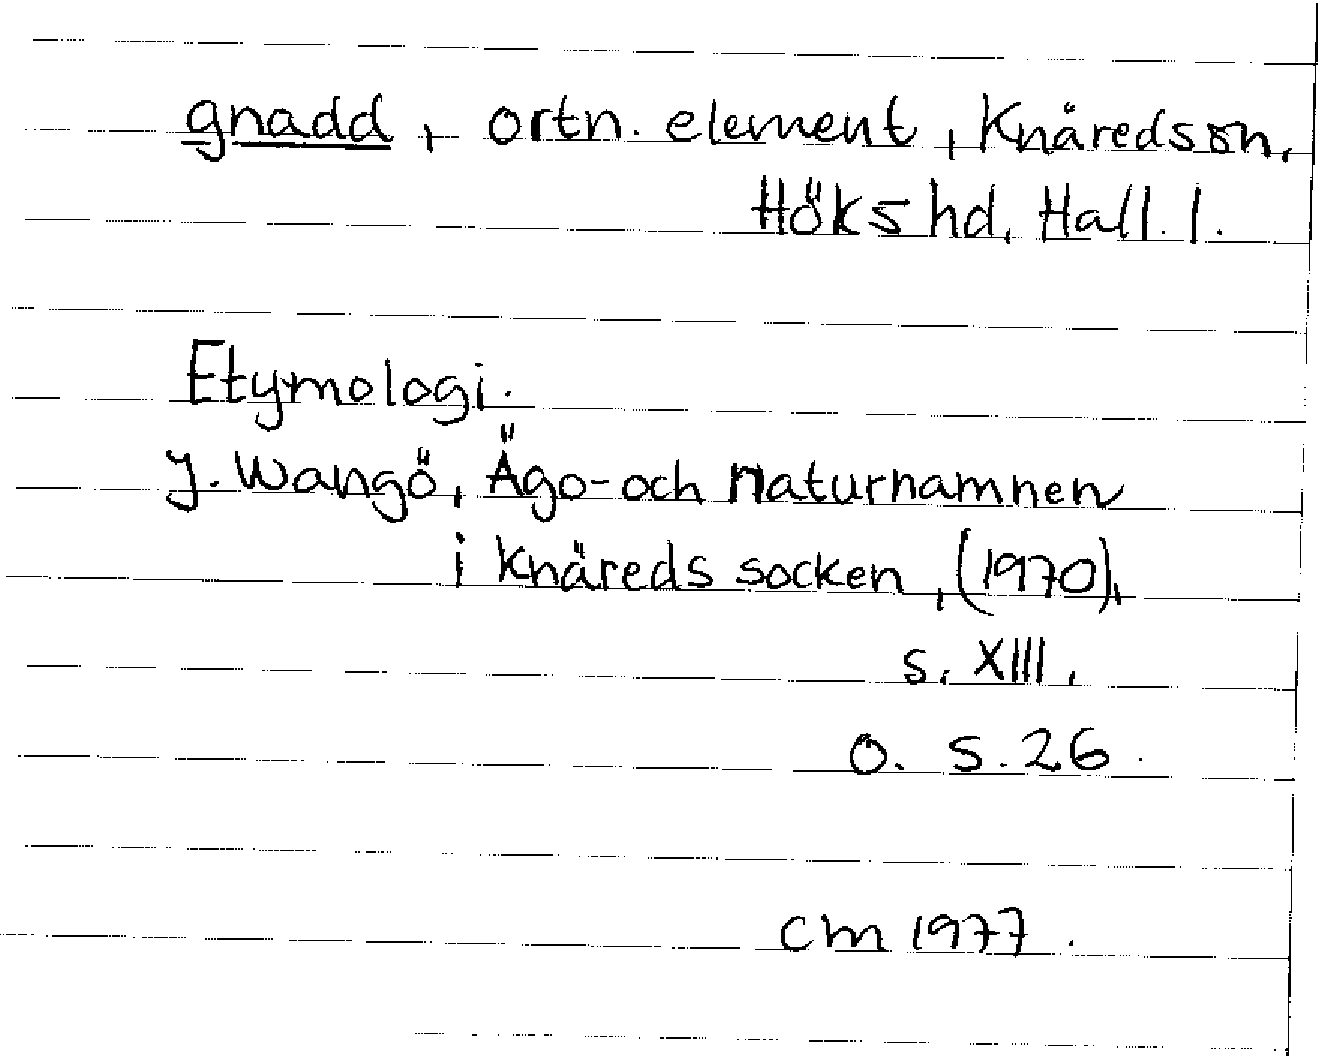 gnadd, ortn. element, Knäreds sn,
Höks hd, Hall. l.
Etymologi.
J. Wangö, Ägo- och naturnamnen
i Knäreds socken, (1970),
s. XIII,
o. s. 26.
CM 1977.